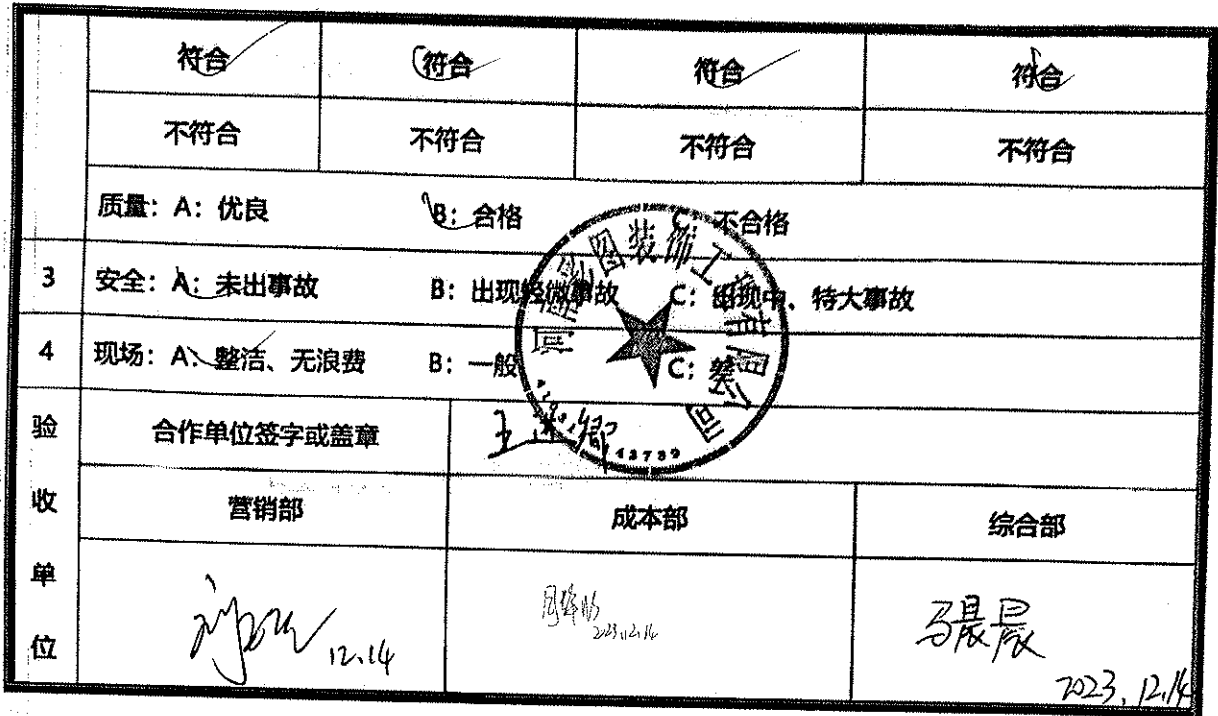 符合 符合 符合 符合
不符合 不符合 不符合 不符合
质量：A：优良 B：合格 C：不合格
3 安全：A：未出事故 B：出现轻微事故 C：出现中、特大事故
4 现场：A：整洁、无浪费 B：一般 C：差
图装饰工程有限公司
43789
验收单位
合作单位签字或盖章
营销部 成本部 综合部
12.14
2023.12.14
马晨晨
2023.12.14